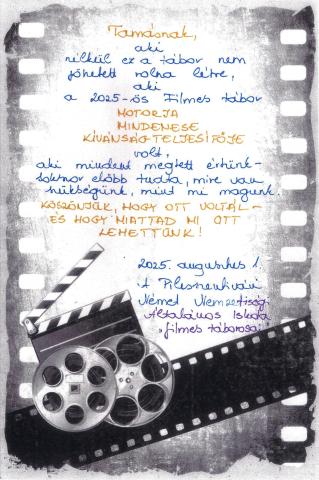 Tamásnak,
aki
nélkül ez a tábor nem
jöhetett volna létre,
aki
a 2025-ös Filmes tábor
MOTORJA
MINDENESE
KÍVÁNSÁGTELJESÍTŐJE
volt,
aki mindent megtett értünk -
sokszor előbb tudta, mire van
szükségünk, mint mi magunk.
KÖSZÖNJÜK, HOGY OTT VOLTÁL -
ÉS HOGY MIATTAD MI OTT
LEHETTÜNK!
2025. augusztus 1.
A Pilisszentiváni
Német Nemzetiségi
Általános Iskola
"filmes táborosai"